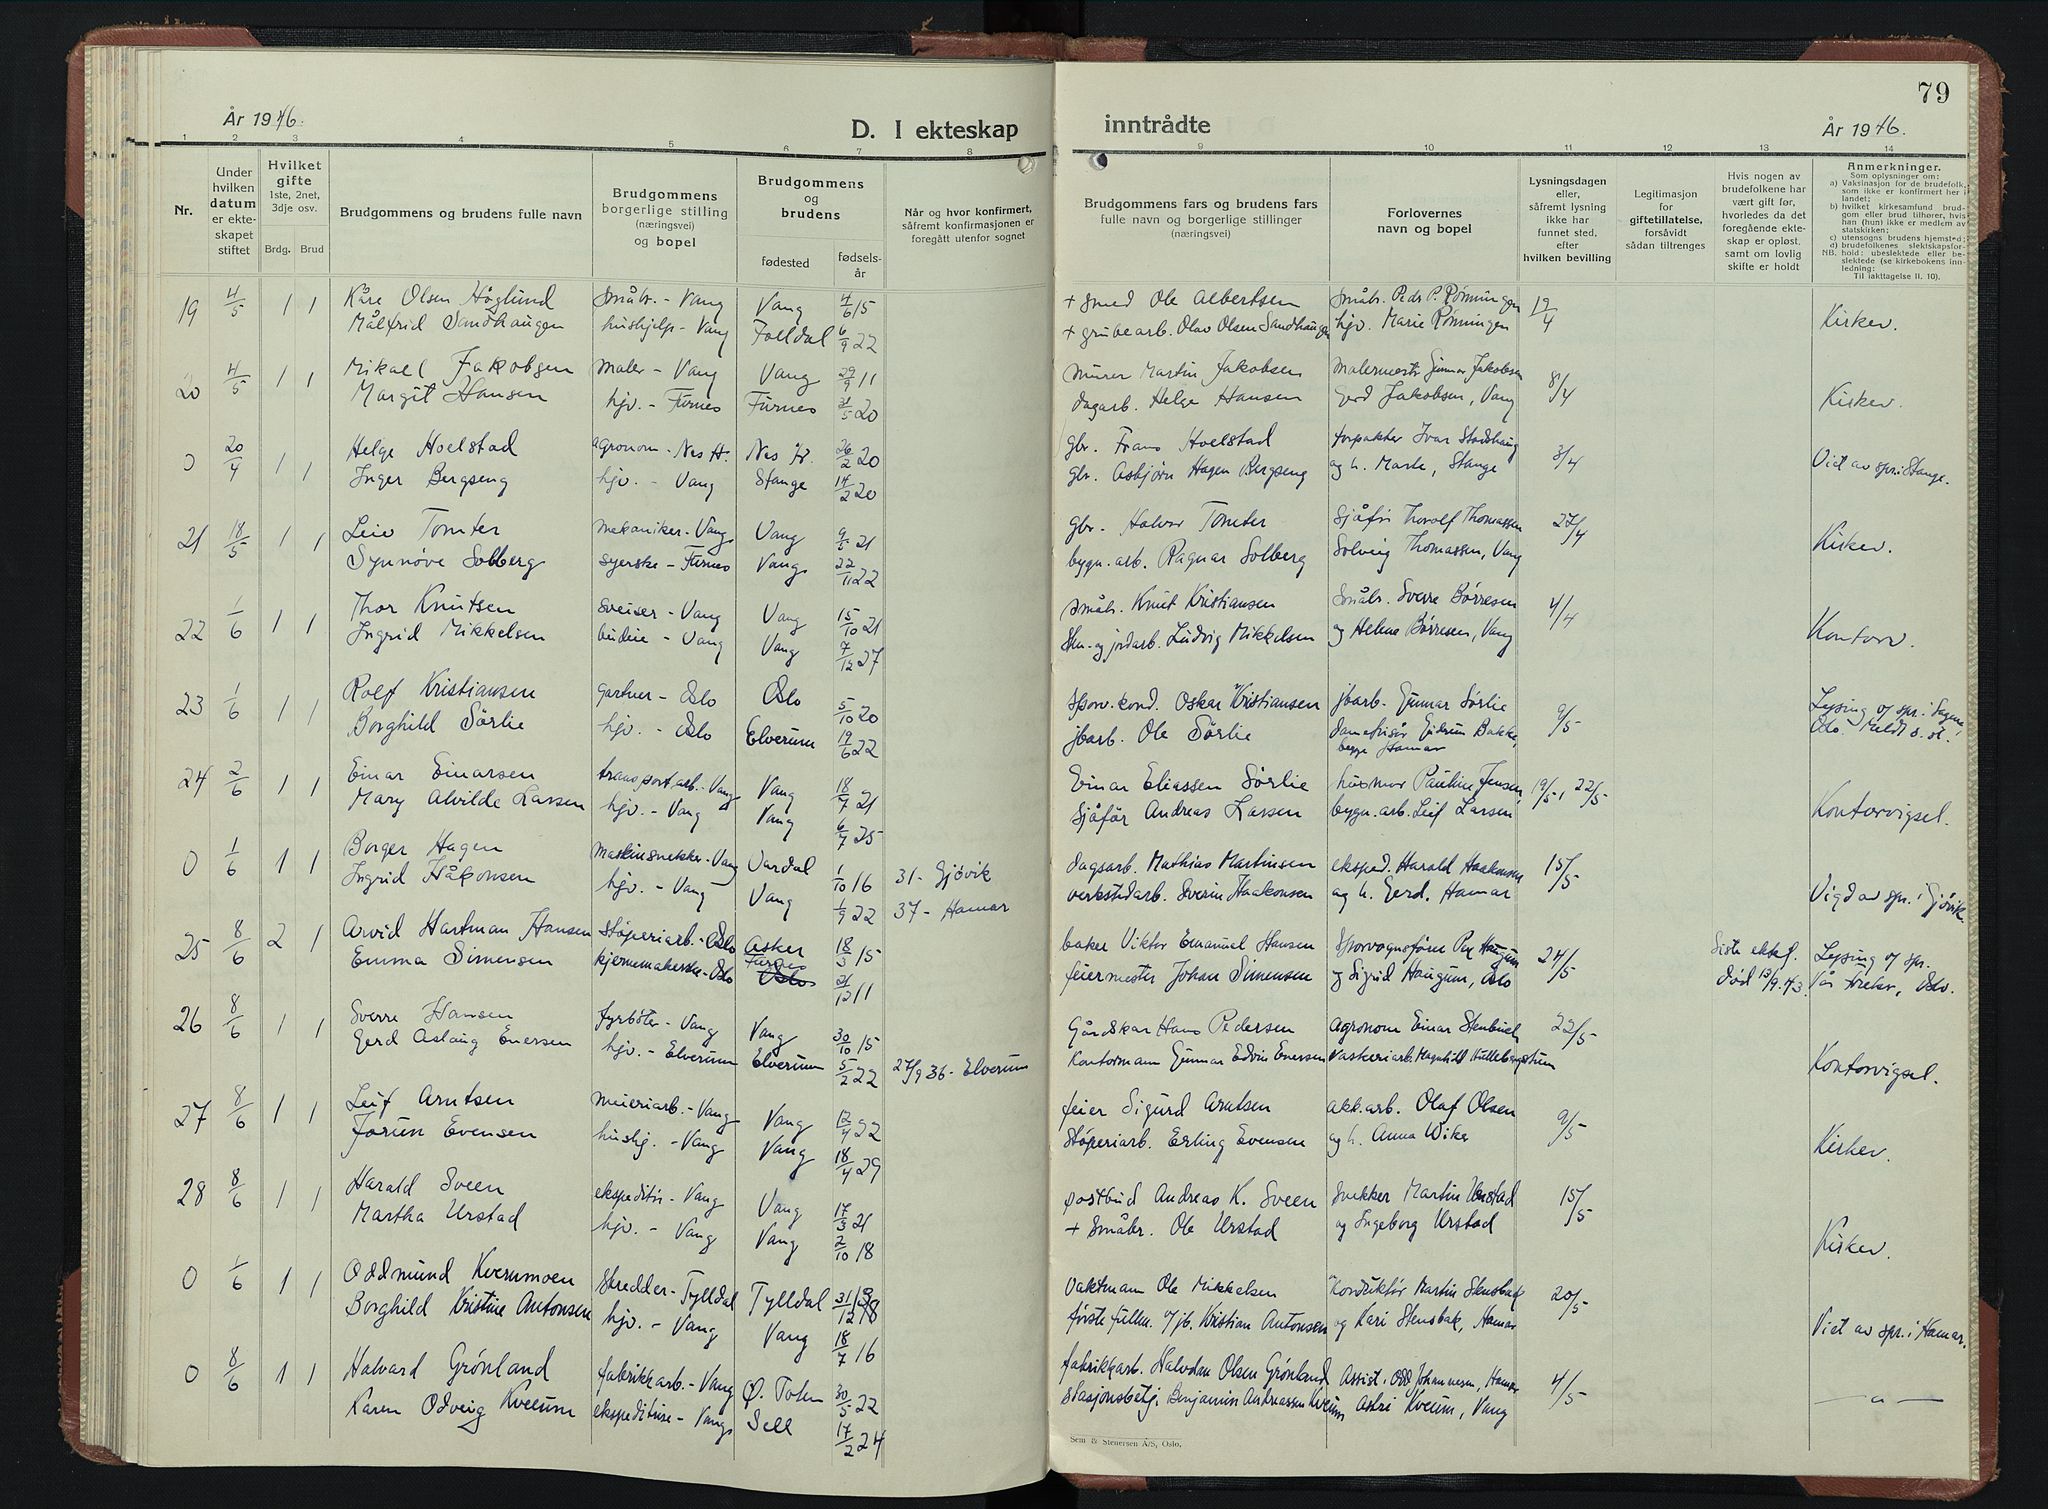 År 1946.
D. I ekteskap
1 2 3 4 5 6 7 8
Nr.
Under hvilken datum er ekteskapet stiftet
Hvilket gifte 1ste, 2net, 3dje osv.
Brdg. Brud
Brudgommens og brudens fulle navn
Brudgommens borgerlige stilling (næringsvei) og bopel
Brudgommens og brudens
fødested
fødselsår
Når og hvor konfirmert, såfremt konfirmasjonen er foregått utenfor sognet
19 4/5 1 1 Kåre Olsen Høglund Småbr. - Vang Vang 4/6 15
Målfrid Sandhaugen hushjelp - Vang Folldal 6/9 22
20 4/5 1 1 Mikael Jakobsen maler - Vang Vang 29/9 11
Margit Hansen hjv. - Furnes Furnes 31/5 20
0 20/4 1 1 Helge Hoelstad agronom - Nes H. Nes H. 26/2 20
Inger Bergseng hjv. - Vang Stange 14/2 20
21 18/5 1 1 Leiv Tomter mekaniker - Vang Vang 9/5 21
Synnøve Solberg syerske - Furnes Vang 22/11 22
22 1/6 1 1 Thor Knutsen Sveiser - Vang Vang 15/10 21
Ingrid Mikkelsen budeie - Vang Vang 7/12 27
23 1/6 1 1 Rolf Kristiansen gartner - Oslo Oslo 5/10 20
Borghild Sørlie hjv. - Oslo Elverum 19/6 22
24 2/6 1 1 Einar Einarsen transportarb. - Vang Vang 18/7 21
Mary Alvilde Larsen hjv. - Vang Vang 6/7 25
0 1/6 1 1 Borger Hagen maskinsnekker - Vang Vardal 1/10 16 31 - Gjøvik
Ingrid Håkonsen hjv. - Vang Vang 1/9 22 37 - Hamar
25 8/6 2 1 Arvid Hartman Hansen Støperiarb. - Oslo Asker 18/3 15
Emma Simensen kjernemakerske - Oslo Furnes Oslo 21/12 11
26 8/6 1 1 Sverre Hansen fyrbøter - Vang Vang 30/10 15
Gerd Aslaug Enersen hjv. - Elverum Elverum 5/2 22 27/9 36 - Elverum
27 8/6 1 1 Leif Arntsen meieriarb. - Vang Vang 12/4 22
Jorun Evensen hushj. - Vang Vang 18/4 29
28 8/6 1 1 Harald Sveen ekspeditør - Vang Vang 17/3 21
Martha Urstad hjv. - Vang Vang 2/10 18
0 1/6 1 1 Oddmund Kvernmoen Skredder - Tylldal Tylldal 31/12 18
Borghild Kristine Antonsen hjv. - Vang Vang 18/7 16
0 8/6 1 1 Halvard Grønland fabrikkarb. - Vang Ø. Toten 30/5 22
Karen Odveig Kveum ekspeditrise - Vang Sell 17/2 24
79
inntrådte
År 1946.
9 10 11 12 13 14
Brudgommens fars og brudens fars fulle navn og borgerlige stillinger (næringsvei)
Forlovernes navn og bopel
Lysningsdagen eller, såfremt lysning ikke har funnet sted, efter hvilken bevilling
Legitimasjon for giftetillatelse, forsåvidt sådan tiltrenges
Hvis nogen av brudefolkene har vært gift før, hvorledes da det foregående ekteskap er opløst, samt om lovlig skifte er holdt
Anmerkninger.
Som oplysninger om:
a) Vaksinasjon for de brudefolk, som ikke er konfirmert her i landet;
b) hvilket kirkesamfund brudgom eller brud tilhører, hvis han (hun) ikke er medlem av statskirken;
c) utensogns brudens hjemsted;
d) brudefolkenes slektskapsforhold: ubeslektede eller beslektede (se kirkebokens innledning:
NB. Til iakttagelse II. 10).
+ smed Ole Albertsen Småbr. Peder P. Rønningen 12/4
+ grubearb. Olav Olsen Sandhaugen hjv. Marie Rønningen Kirkev.
murer Martin Jakobsen Malermestr Gunnar Jakobsen 8/4
dagarb. Helge Hansen Gerd Jakobsen, Vang Kirkev.
gbr. Frans Hoelstad forpakter Ivar Stadshaug 3/4
gbr. Asbjørn Hagen Bergseng og h. Marte, Stange Viet av spr. i Stange.
gbr. Halvor Tomter Sjåfør Thorolf Thomassen 27/4
bygn. arb. Ragnar Solberg Solveig Thomassen, Vang Kirkev.
småbr. Knut Kristiansen Småbr. Sverre Børresen 4/4
Sten- og jordarb. Ludvig Mikkelsen og Helene Børresen, Vang Kontorv.
Sporv. kond. Oskar Kristiansen jbarb. Gunnar Sørlie 9/5 Lysing og spr. i Sagene,
jbarb. Ole Sørlie damefrisør Gudrun Bakke, begge Hamar Oslo. Meldt s. st.
Einar Eliassen Sørlie husmor Pauline Jensen, 19/5, 22/5
Sjåfør Andreas Larsen bygn. arb. Leif Larsen Kontorvigsel.
dagsarb. Mathias Martinsen eksped. Harald Haakonsen 15/5
verkstedarb. Sverin Haakonsen og h. Gerd. Hamar Vigd av spr. i Gjøvik.
baker Viktor Emanuel Hansen Sporvognsfører Per Haugum 24/5 Siste ektef. Lysing og spr.
feiermester Johan Simensen og Sigrid Haugum, Oslo død 13/9.43. Vår Frelser, Oslo.
Gårdskar Hans Pedersen Agronom Einar Stenbæk 22/5
Kontormann Gunnar Edvin Enersen Vaskeriarb. Magnhild Kulleborgstuen Kontorvigsel.
feier Sigurd Arntsen akk. arb. Olaf Olsen 9/5
Støperiarb. Erling Evensen og h. Anna Wike Kirkev.
postbud Andreas K. Sveen Snekker Martin Urstad 15/5
+ Småbr. Ole Urstad og Ingeborg Urstad Kirkev.
Vaktmann Ole Mikkelsen Konduktør Martin Stensbak 20/5
første fullm. v/jb. Kristian Antonsen og Kari Stensbak, Hamar Viet av spr. i Hamar.
fabrikkarb. Halvdan Olsen Grønland Assist. Odd Johannesen, Hamar 4/5
Stasjonsbetj. Benjamin Andreassen Kveum Astri Kveum, Vang — " —
Sem & Stenersen A/S, Oslo.